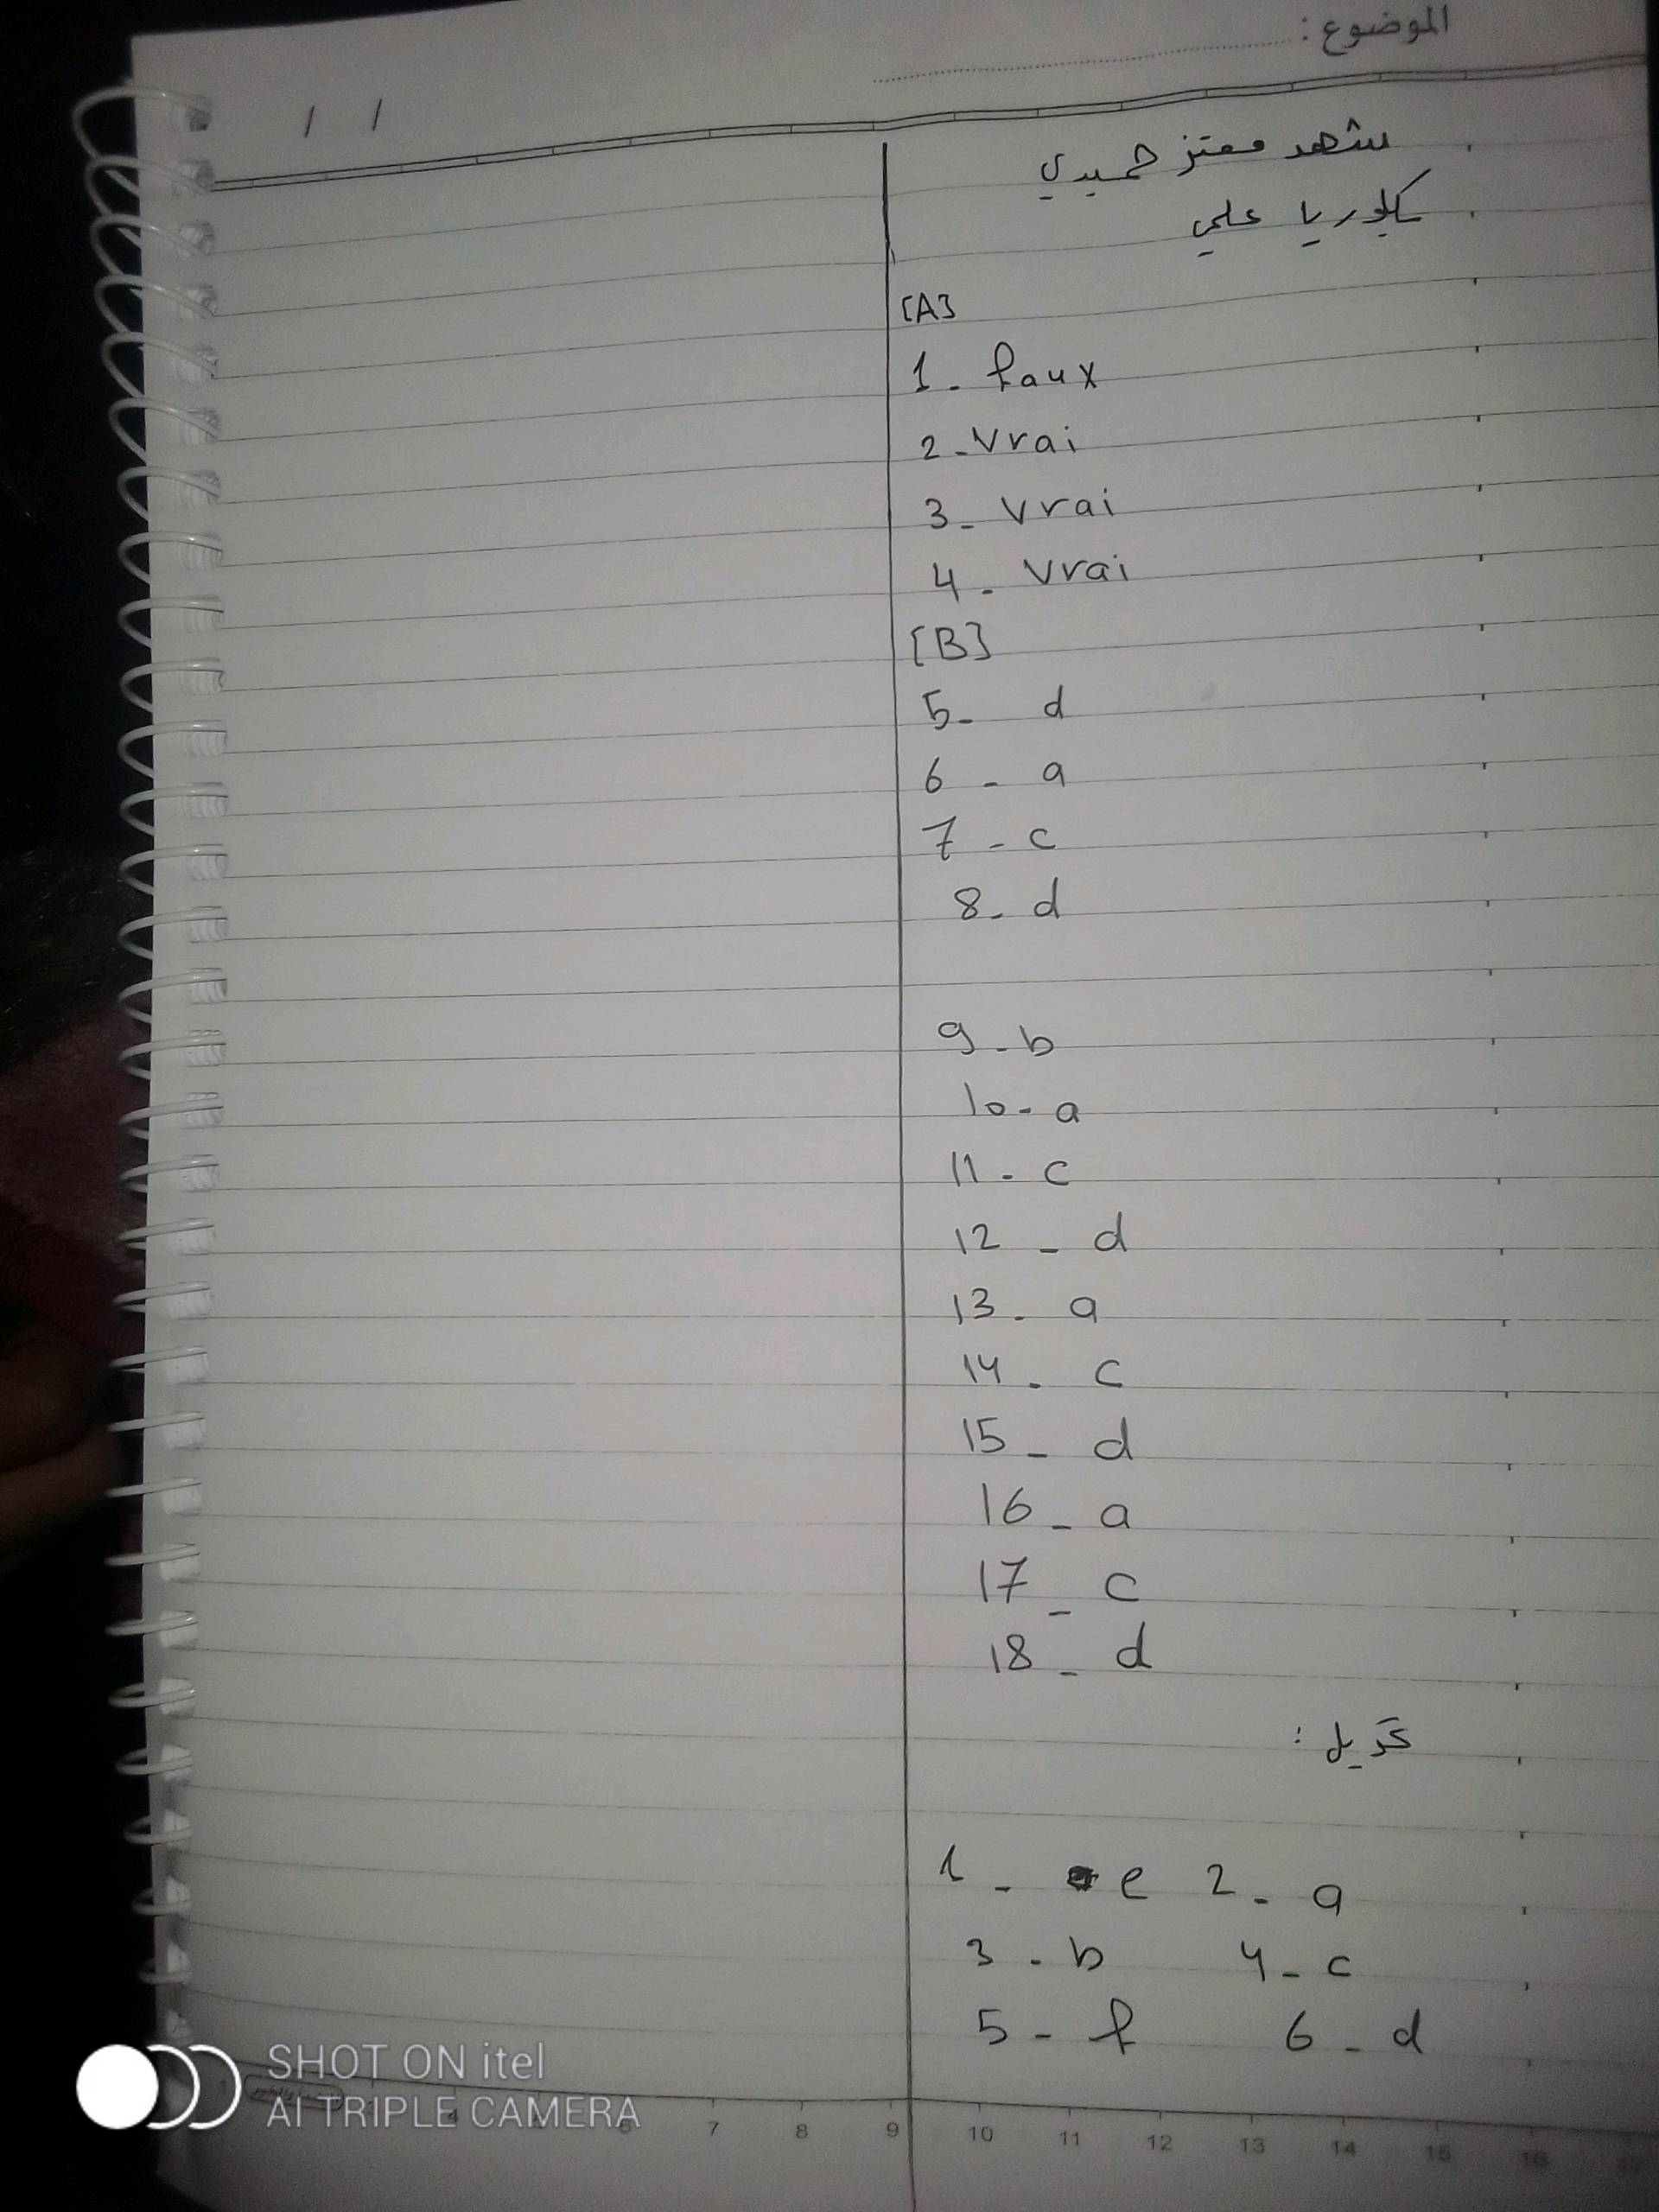 الموضوع :
/ /
شهد معتز حميدي
بكلوريا علمي
[A]
1- faux
2- Vrai
3- Vrai
4- Vrai
[B]
5- d
6- a
7- c
8- d
9- b
10- a
11- c
12- d
13- a
14- c
15- d
16- a
17- c
18- d
1- e 2- a
3- b 4- c
5- f 6- d
SHOT ON itel
AI TRIPLE CAMERA
6 7 8 9 10 11 12 13 14 15 16